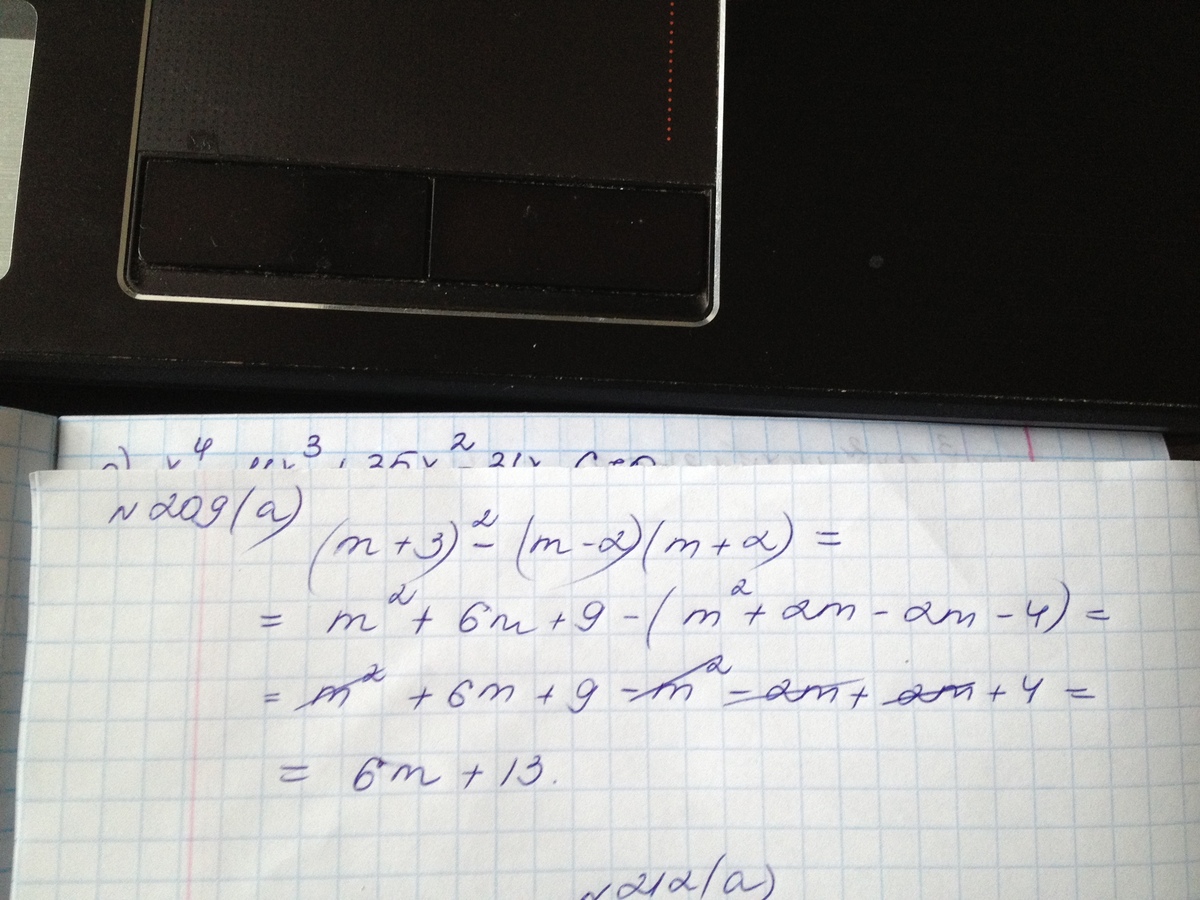 №209(а)
(m+3)² - (m-2)(m+2) =
= m² + 6m + 9 - (m² + 2m - 2m - 4) =
= m² + 6m + 9 - m² - 2m + 2m + 4 =
= 6m + 13.
№212(а)